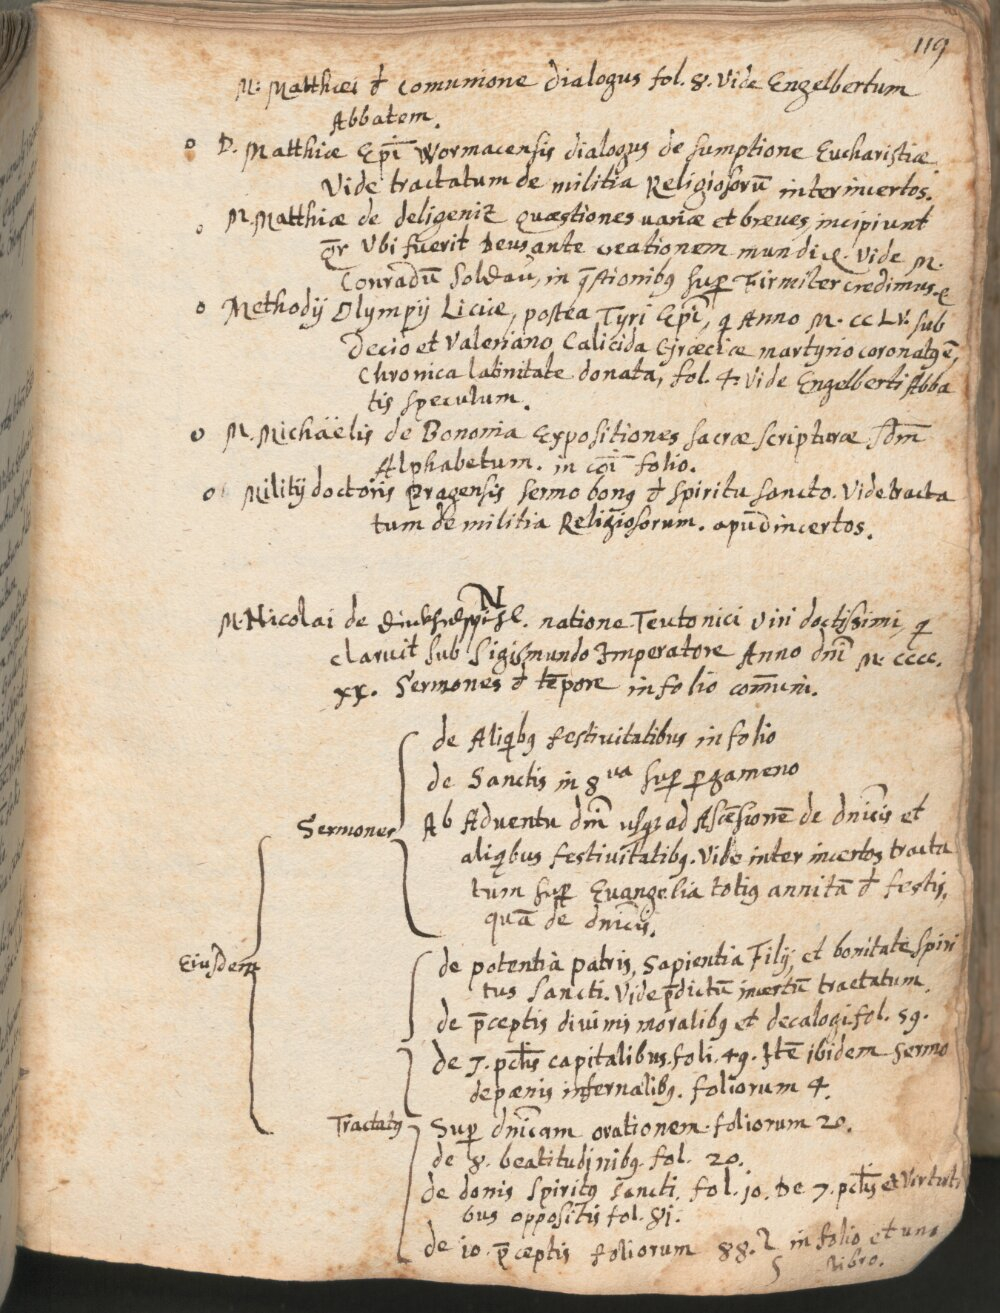 119
M: Matthæi đ comunione dialogus fol. 8. Vide Engelbertum
Abbatem.
o D. Matthiæ Epī Wormacensis dialogus de sumptione Eucharistiæ.
Vide tractatum de militia Religiosorū inter incertos.
o M. Matthiæ de Quæstiones uariæ et breues, incipiunt
Qr Vbi fuerit Deus ante creationem mundi &. Vide M.
Conradū Soldau, in q̄stionibꝯ sup Firmiter credimus. &
o Methodij Olympij Liciæ, postea Tyri Epī, q Anno M. CC LV. sub
Decio et Valeriano Calicida Græciæ martyrio coronatꝯ ē,
Chronica latinitate donata, fol. 4. Vide Engelberti Abba
tis speculum.
o M. Michäelis de Bononia Expositiones sacræ scripturæ sdm̄
Alphabetum. in cōi folio.
o Militij doctoris Pragensis sermo bonꝯ đ spiritu sancto. Vide tracta
tum de militia Religiosorum. apud incertos.
N
M. Nicolai de natione Teutonici viri doctissimi, q
claruit sub Sigismundo Imperatore Anno dnī M. CCCC.
XX. Sermones đ tēpore in folio comuni.
de Aliqibꝯ festiuitatibus in folio
de Sanctis in 8ua sup pgameno
Sermones Ab Aduentu dnī usq ad Ascēsionē de dnicis et
aliqibus festiuitatibꝯ. Vide inter incertos tracta
tum sup Euangelia totiꝯ anni tā đ festis,
quā de dnicis.
Eiusdem
de potentia patris, Sapientia Filij, et bonitate Spiri
tus Sancti. Vide p̄dictū incertū tractatum.
de p̄ceptis diuinis moralibꝯ et decalogi fol. 59.
de 7. pctīs capitalibus. foli. 49. Itē ibidem Sermo
de pænis infernalibꝯ. foliorum 4.
Tractatꝯ Sup dnīcam orationem. foliorum 20.
de 8. beatitudinibꝯ fol. 20.
de donis Spiritꝯ Sancti. fol. 10. De 7. pctīs et Virtuti
bus oppositis fol. 81.
de 10. p̄ceptis foliorum 88. in folio et uno
libro.